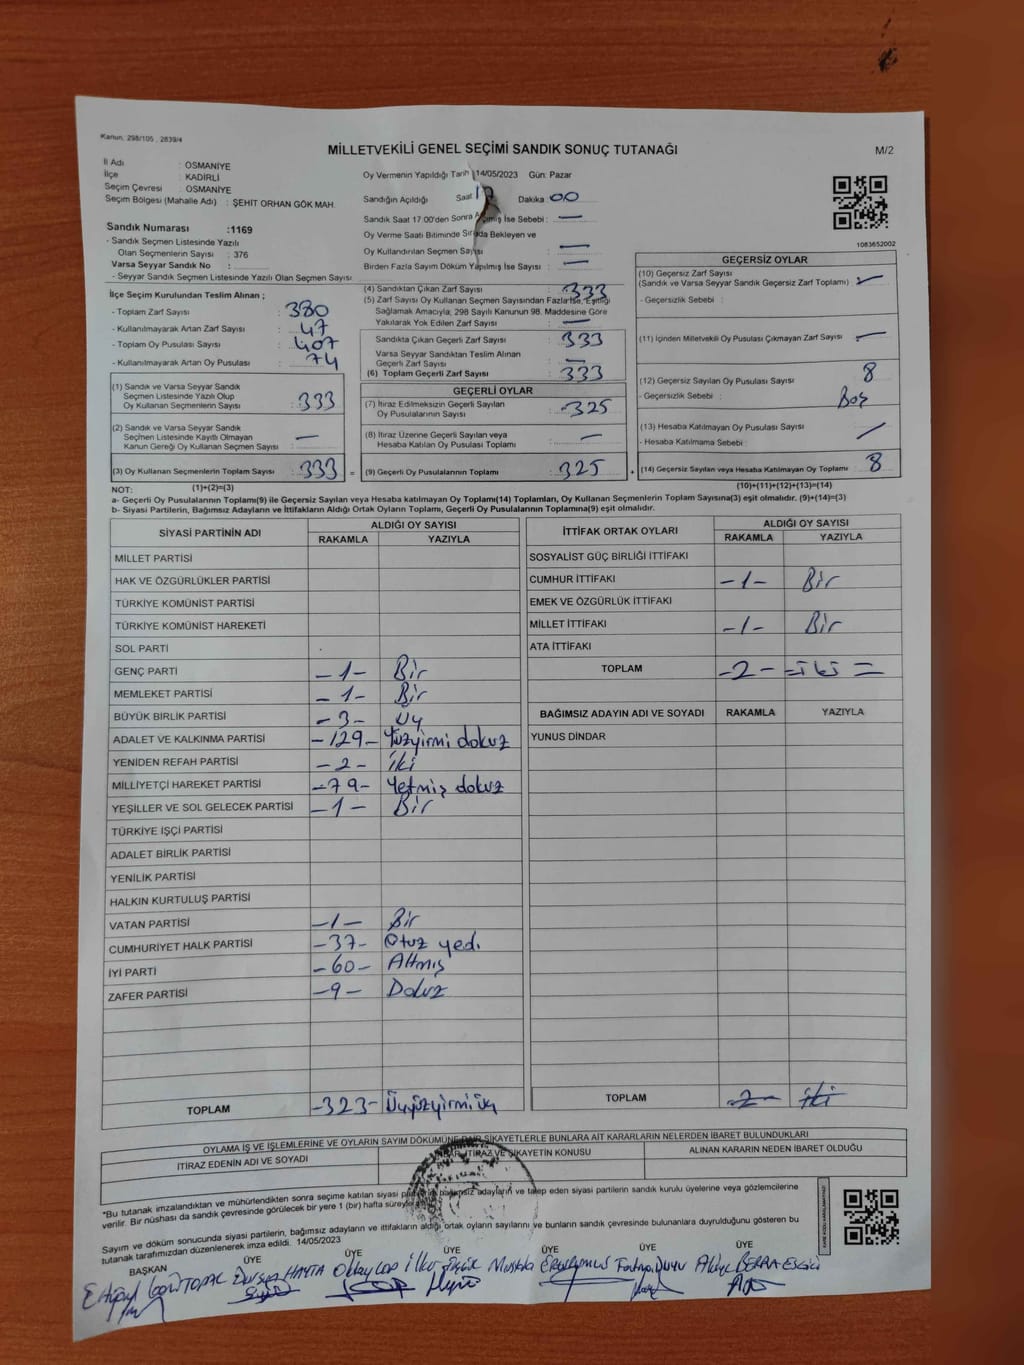 Kanun, 298/105 , 2839/4
MİLLETVEKİLİ GENEL SEÇİMİ SANDIK SONUÇ TUTANAĞI
M/2
İl Adı : OSMANİYE
İlçe : KADİRLİ
Seçim Çevresi : OSMANİYE
Seçim Bölgesi (Mahalle Adı) : ŞEHİT ORHAN GÖK MAH.
Sandık Numarası :1169
- Sandık Seçmen Listesinde Yazılı
Olan Seçmenlerin Sayısı : 376
Varsa Seyyar Sandık No :
- Seyyar Sandık Seçmen Listesinde Yazılı Olan Seçmen Sayısı
Oy Vermenin Yapıldığı Tarih 14/05/2023 Gün: Pazar
Sandığın Açıldığı Saat Dakika 00
Sandık Saat 17:00'den Sonra İse Sebebi : —
Oy Verme Saati Bitiminde Sırada Bekleyen ve
Oy Kullandırılan Seçmen Sayısı —
Birden Fazla Sayım Döküm Yapılmış İse Sayısı : —
1083652002
İlçe Seçim Kurulundan Teslim Alınan ;
- Toplam Zarf Sayısı : 380
- Kullanılmayarak Artan Zarf Sayısı : 47
- Toplam Oy Pusulası Sayısı : 407
- Kullanılmayarak Artan Oy Pusulası : 74
(1) Sandık ve Varsa Seyyar Sandık
Seçmen Listesinde Yazılı Olup
Oy Kullanan Seçmenlerin Sayısı : 333
(2) Sandık ve Varsa Seyyar Sandık
Seçmen Listesinde Kayıtlı Olmayan
Kanun Gereği Oy Kullanan Seçmen Sayısı : —
(3) Oy Kullanan Seçmenlerin Toplam Sayısı : 333 =
(4) Sandıktan Çıkan Zarf Sayısı : 333
(5) Zarf Sayısı Oy Kullanan Seçmen Sayısından Fazla İse, Eşitliği
Sağlamak Amacıyla, 298 Sayılı Kanunun 98. Maddesine Göre
Yakılarak Yok Edilen Zarf Sayısı : —
Sandıkta Çıkan Geçerli Zarf Sayısı : 333
Varsa Seyyar Sandıktan Teslim Alınan
Geçerli Zarf Sayısı : —
(6) Toplam Geçerli Zarf Sayısı : 333
GEÇERLİ OYLAR
(7) İtiraz Edilmeksizin Geçerli Sayılan
Oy Pusulalarının Sayısı : 325
(8) İtiraz Üzerine Geçerli Sayılan veya
Hesaba Katılan Oy Pusulası Toplamı : —
(9) Geçerli Oy Pusulalarının Toplamı : 325 +
GEÇERSİZ OYLAR
(10) Geçersiz Zarf Sayısı
(Sandık ve Varsa Seyyar Sandık Geçersiz Zarf Toplamı) : —
- Geçersizlik Sebebi :
(11) İçinden Milletvekili Oy Pusulası Çıkmayan Zarf Sayısı : —
(12) Geçersiz Sayılan Oy Pusulası Sayısı : 8
- Geçersizlik Sebebi : Boş
(13) Hesaba Katılmayan Oy Pusulası Sayısı : —
- Hesaba Katılmama Sebebi :
(14) Geçersiz Sayılan veya Hesaba Katılmayan Oy Toplamı : 8
NOT: (1)+(2)=(3) (10)+(11)+(12)+(13)=(14)
a- Geçerli Oy Pusulalarının Toplamı(9) ile Geçersiz Sayılan veya Hesaba katılmayan Oy Toplamı(14) Toplamları, Oy Kullanan Seçmenlerin Toplam Sayısına(3) eşit olmalıdır. (9)+(14)=(3)
b- Siyasi Partilerin, Bağımsız Adayların ve İttifakların Aldığı Ortak Oyların Toplamı, Geçerli Oy Pusulalarının Toplamına(9) eşit olmalıdır.
SİYASİ PARTİNİN ADI ALDIĞI OY SAYISI
RAKAMLA YAZIYLA
MİLLET PARTİSİ
HAK VE ÖZGÜRLÜKLER PARTİSİ
TÜRKİYE KOMÜNİST PARTİSİ
TÜRKİYE KOMÜNİST HAREKETİ
SOL PARTİ
GENÇ PARTİ -1- Bir
MEMLEKET PARTİSİ -1- Bir
BÜYÜK BİRLİK PARTİSİ -3- Üç
ADALET VE KALKINMA PARTİSİ -129- Yüzyirmi dokuz
YENİDEN REFAH PARTİSİ -2- iki
MİLLİYETÇİ HAREKET PARTİSİ -79- Yetmiş dokuz
YEŞİLLER VE SOL GELECEK PARTİSİ -1- Bir
TÜRKİYE İŞÇİ PARTİSİ
ADALET BİRLİK PARTİSİ
YENİLİK PARTİSİ
HALKIN KURTULUŞ PARTİSİ
VATAN PARTİSİ -1- Bir
CUMHURİYET HALK PARTİSİ -37- Otuz yedi
İYİ PARTİ -60- Altmış
ZAFER PARTİSİ -9- Dokuz
TOPLAM -323- Üçyüzyirmi üç
İTTİFAK ORTAK OYLARI ALDIĞI OY SAYISI
RAKAMLA YAZIYLA
SOSYALİST GÜÇ BİRLİĞİ İTTİFAKI
CUMHUR İTTİFAKI -1- Bir
EMEK VE ÖZGÜRLÜK İTTİFAKI
MİLLET İTTİFAKI -1- Bir
ATA İTTİFAKI
TOPLAM -2- =iki=
BAĞIMSIZ ADAYIN ADI VE SOYADI RAKAMLA YAZIYLA
YUNUS DİNDAR
TOPLAM -2- iki
OYLAMA İŞ VE İŞLEMLERİNE VE OYLARIN SAYIM DÖKÜMÜNE DAİR ŞİKAYETLERLE BUNLARA AİT KARARLARIN NELERDEN İBARET BULUNDUKLARI
İTİRAZ EDENİN ADI VE SOYADI İTİRAZ VE ŞİKAYETİN KONUSU ALINAN KARARIN NEDEN İBARET OLDUĞU
*Bu tutanak imzalandıktan ve mühürlendikten sonra seçime katılan siyasi bağımsız adayların ve talep eden siyasi partilerin sandık kurulu üyelerine veya gözlemcilerine
verilir. Bir nüshası da sandık çevresinde görülecek bir yere 1 (bir) hafta süreyle
Sayım ve döküm sonucunda siyasi partilerin, bağımsız adayların ve ittifakların aldığı ortak oyların sayılarını ve bunların sandık çevresinde bulunanlara duyrulduğunu gösteren bu
tutanak tarafımızdan düzenlenerek imza edildi. 14/05/2023
BAŞKAN ÜYE ÜYE ÜYE ÜYE ÜYE ÜYE